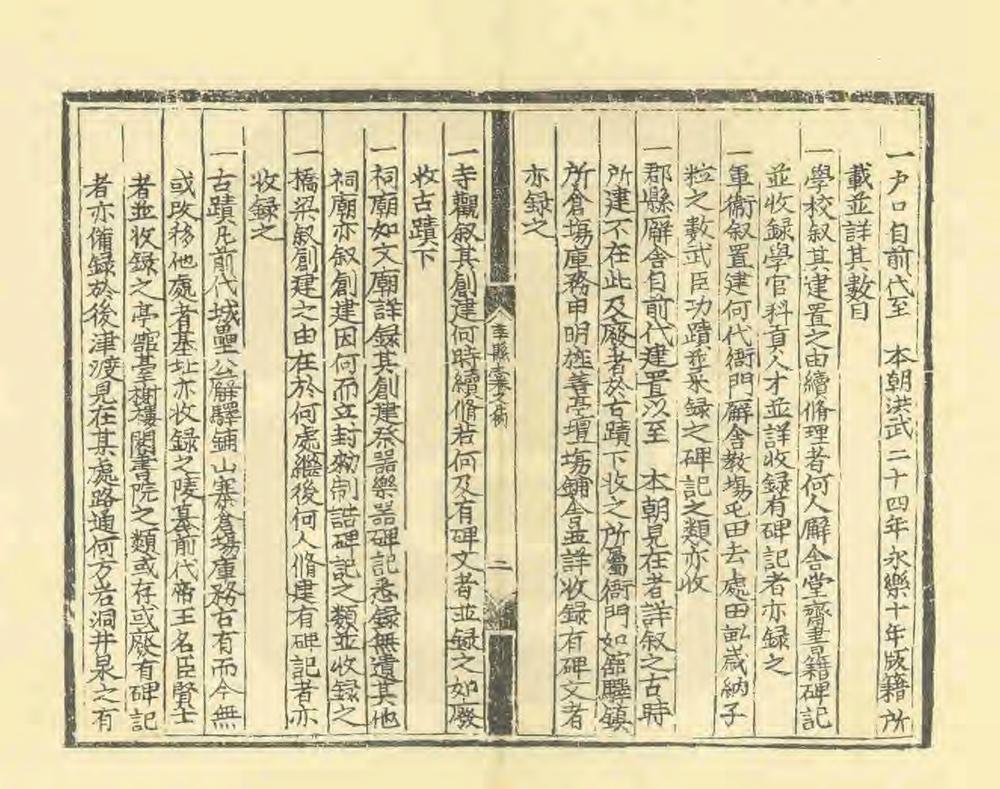 一戶口自前代至　本朝洪武二十四年永樂十年版籍所
載並詳其數目
一學校叙其建置之由續脩理者何人廨舍堂齋書籍碑記
並收録學官科貢人才並詳收録有碑記者亦録之
一軍衛叙置建何代衙門廨舍教塲屯田去處田畝嵗納子
粒之數武臣功蹟並采録之碑記之類亦收
一郡縣廨舍自前代建置以至　本朝見在者詳叙之古時
所建不在此及廢者於古蹟下收之所屬衙門如舘驛鎮
所倉塲庫務申明旌善亭壇塲鋪舍並詳收録有碑文者
亦録之
縣志
二
一寺觀叙其創建何時續脩若何及有碑文者並録之如廢
收古蹟下
一祠廟如文廟詳録其創建祭器樂器碑記悉録無遺其他
祠廟亦叙創建因何而立封勑制誥碑記之類並收録之
一橋梁叙創建之由在於何處繼後何人脩建有碑記者亦
收録之
一古蹟凡前代城壘公廨驛鋪山寨倉塲庫務古有而今無
或改移他處者基址亦收録之陵墓前代帝王名臣賢士
者並收録之亭舘臺榭樓閣書院之類或存或廢有碑記
者亦備録於後津渡見在某處路通何方岩洞井泉之有